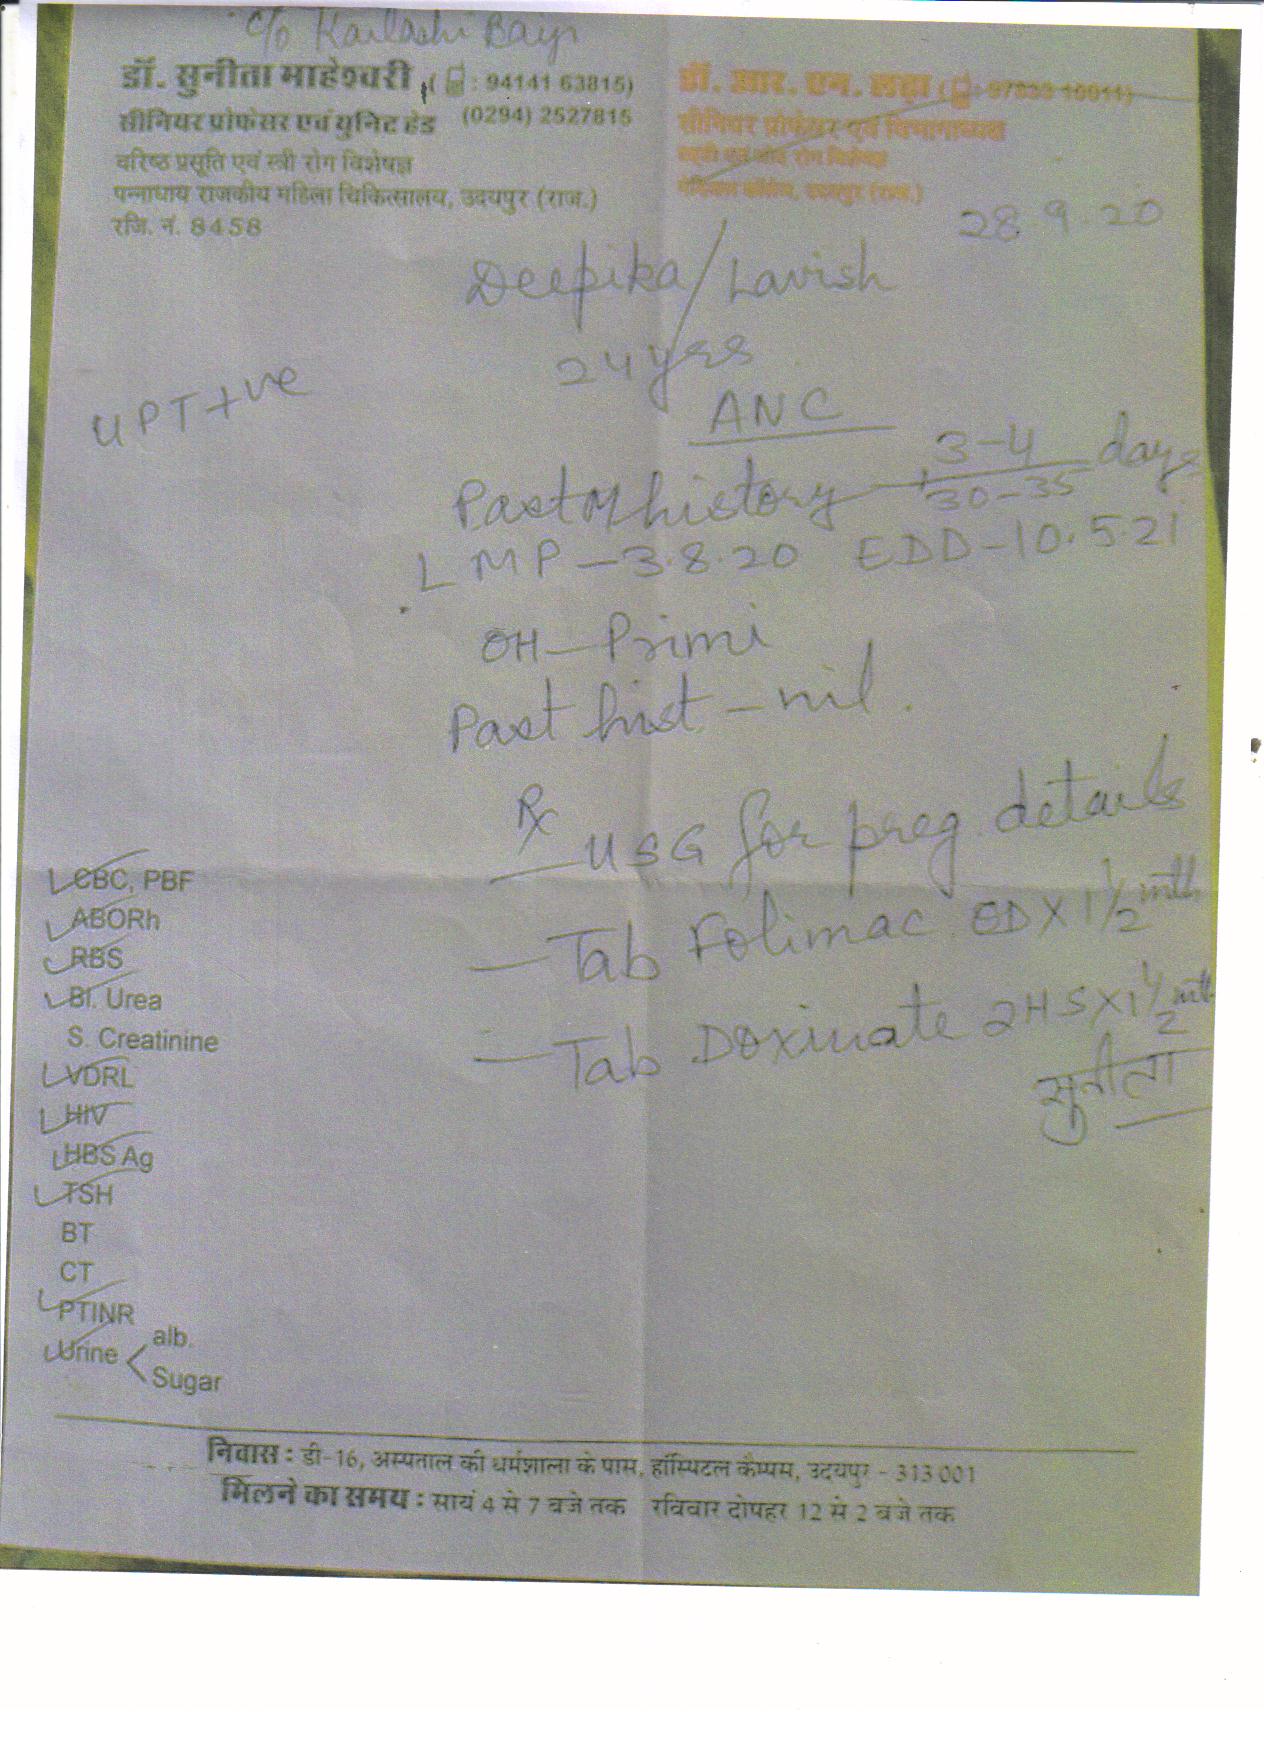 c/o Kailashi Baiji
डॉ. सुनीता माहेश्वरी ( : 94141 63815)
सीनियर प्रोफेसर एवं युनिट हेड (0294) 2527815
वरिष्ठ प्रसूति एवं स्त्री रोग विशेषज्ञ
पन्नाधाय राजकीय महिला चिकित्सालय, उदयपुर (राज.)
रजि. नं. 8458
डॉ. आर. एन. लढ़ा
सीनियर प्रोफेसर एवं विभागाध्यक्ष
रोग विशेषज्ञ
मेडिकल कॉलेज, उदयपुर (राज.)
28.9.20
Deepika/Lavish
24 yrs
UPT +ve
ANC
Past M history 3-4 days
30-35
LMP - 3.8.20 EDD - 10.5.21
OH - Primi
Past hist - nil.
Rx
- USG for preg. details
- Tab Folimac OD X 1 1/2 mth
- Tab Doxinate 2HS X 1 1/2 mth
सुनीता
CBC, PBF
ABORh
RBS
Bl. Urea
S. Creatinine
VDRL
HIV
HBS Ag
TSH
BT
CT
PTINR
Urine < alb.
Sugar
निवास : डी-16, अस्पताल की धर्मशाला के पास, हॉस्पिटल कैम्पस, उदयपुर - 313 001
मिलने का समय : सायं 4 से 7 बजे तक रविवार दोपहर 12 से 2 बजे तक